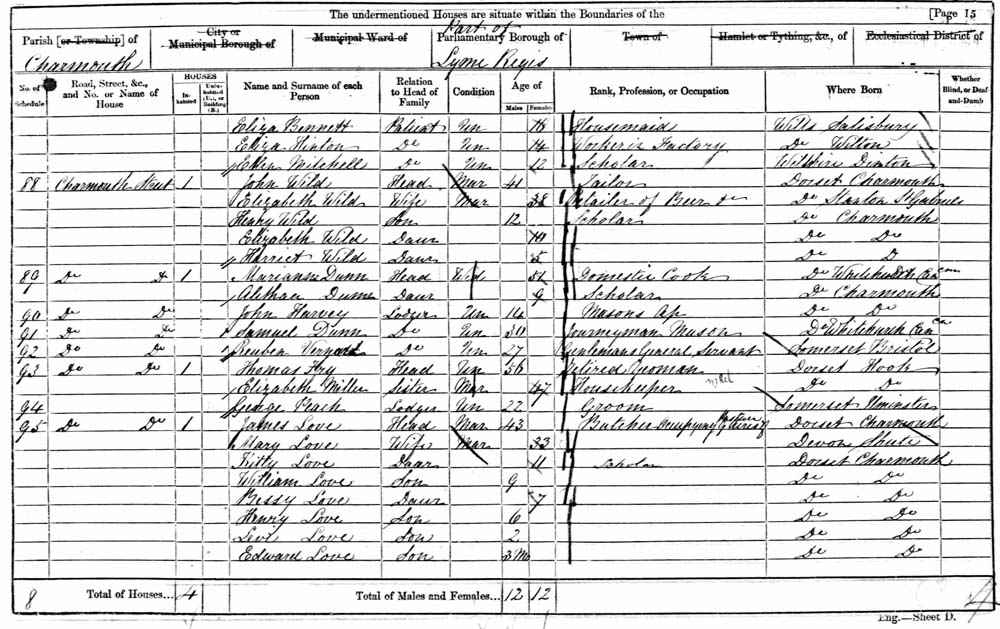 The undermentioned Houses are situate within the Boundaries of the [Page 15
Parish [or Township] of City or Municipal Borough of Municipal Ward of Part of Parliamentary Borough of Town of Hamlet or Tything, &c., of Ecclesiastical District of
Charmouth Lyme Regis
No. of Schedule Road, Street, &c., and No. or Name of House HOUSES Inhabited Uninhabited (U.), or Building (B.) Name and Surname of each Person Relation to Head of Family Condition Age of Males Females Rank, Profession, or Occupation Where Born Whether Blind, or Deaf-and-Dumb
Eliza Bennett Patient Un Housemaid Wilts Salisbury
Eliza Hinton Do Un 14 Worker in Factory Do Wilton
Ellen Mitchell Do Un 12 Scholar Wiltshire Dinton
88 Charmouth Street 1 John Wild Head Mar 41 Tailor Dorset Charmouth
Elizabeth Wild Wife Mar 38 Retailer of Beer Do Stanton St Gabriels
Henry Wild Son 12 Scholar Do Charmouth
Elizabeth Wild Daur 10 Do Do
Harriet Wild Daur 5 Do D
89 Do Do 1 Marianne Dunn Head Wd 51 Domestic Cook Do Whitchurch Can
Daur 9 Scholar Do Charmouth
90 Do Do John Harvey Lodger Un 14 Masons Ap Do Do
91 Do Do Samuel Dunn Do Un 30 Journeyman Mason Do Whitchurch Can
92 Do Do Reuben Do Un 27 Gentlemans General Servant Somerset Bristol
93 Do Do 1 Thomas Fry Head Un 56 Retired Yeoman Dorset Hook
Elizabeth Miller Sister Mar 47 Housekeeper Do Do
94 George Lodger Un 22 Groom Somerset Ilminster
95 Do Do 1 James Love Head Mar 43 Butcher Occupying Dorset Charmouth
Mary Love Wife Mar 33 Devon Shute
Kitty Love Daur 11 Scholar Dorset Charmouth
William Love Son 9 Do Do
Bessy Love Daur 7 Do Do
Henry Love Son 6 Do Do
Levi Love Son 2 Do Do
Edward Love Son 3 Mo Do Do
8 Total of Houses... 4 Total of Males and Females... 12 12
Eng.—Sheet D.